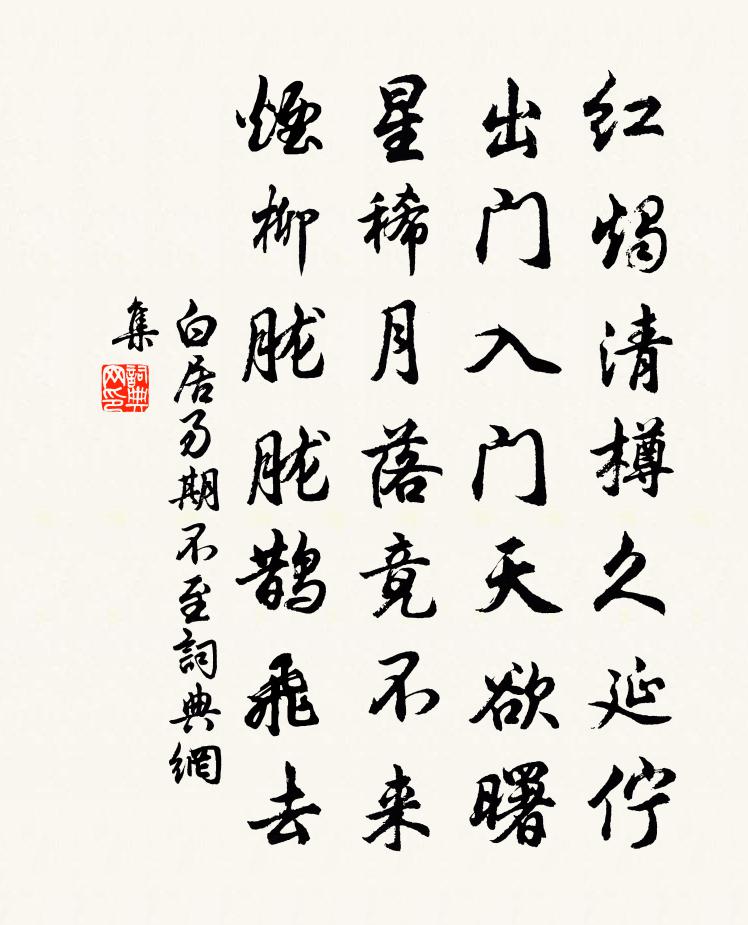 红烛清樽久延伫
出门入门天欲曙
星稀月落竟不来
烟柳胧胧鹊飞去
白居易期不至詞典網
集
詞典
网印